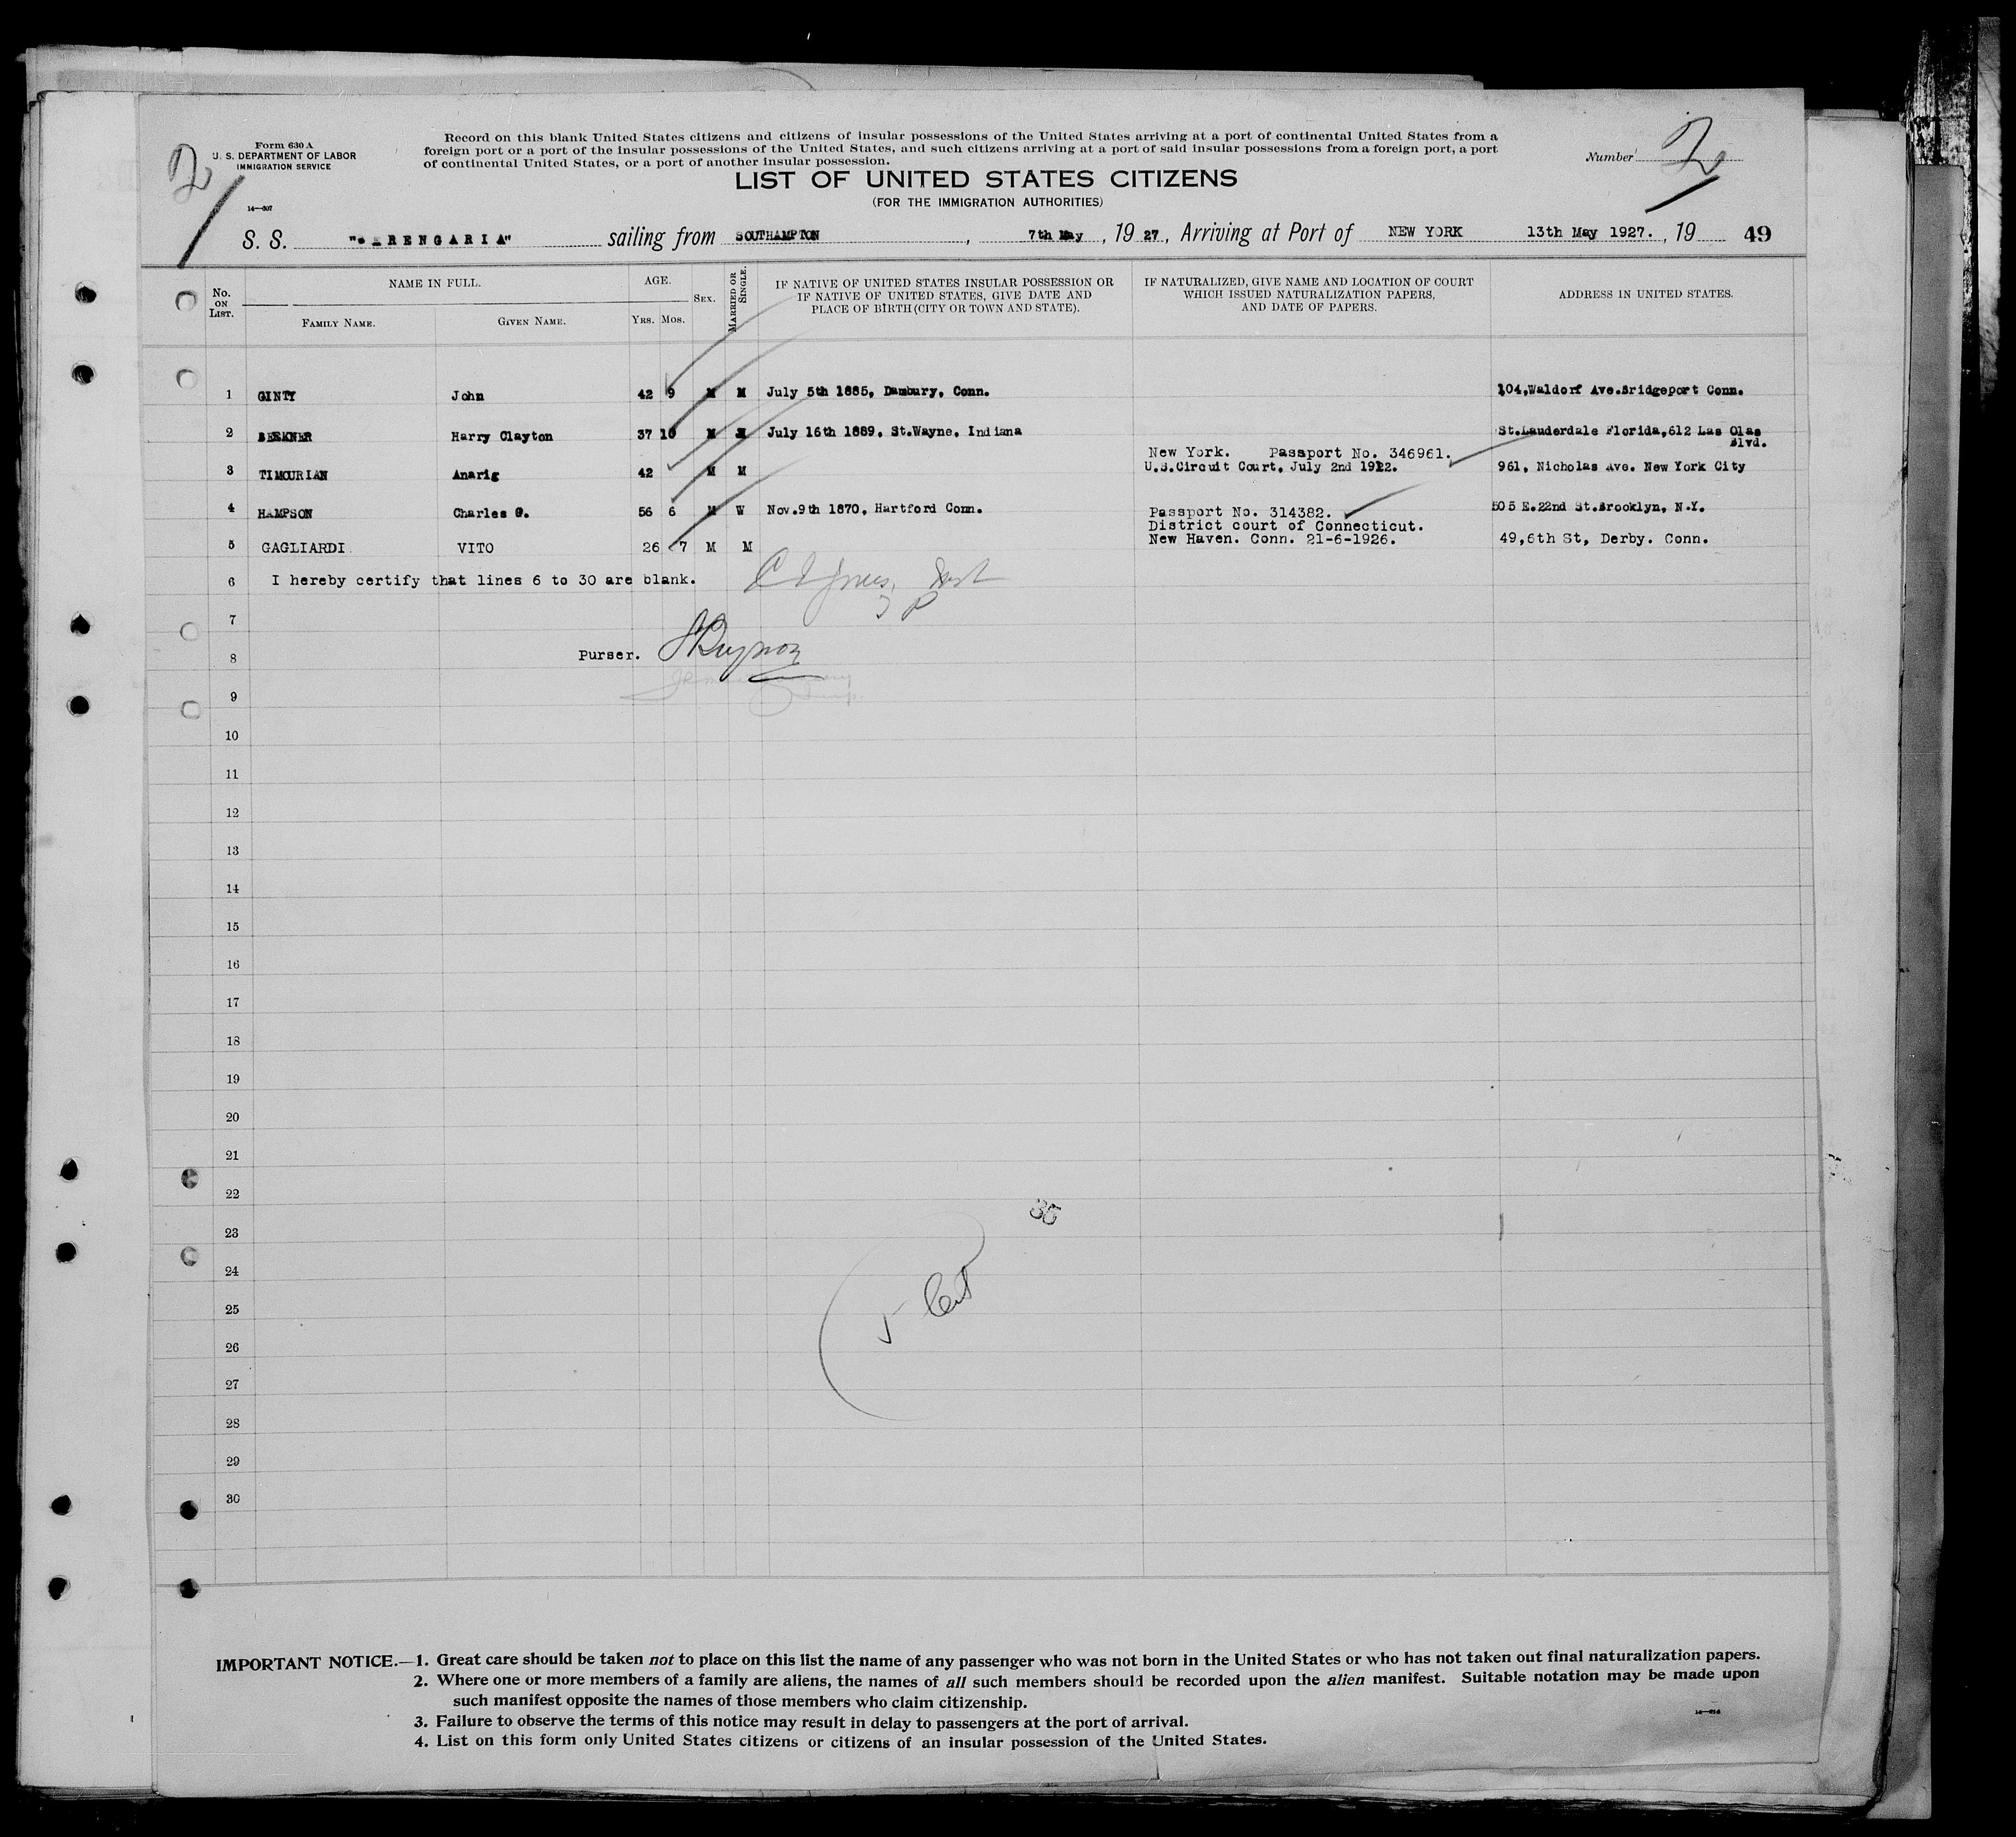 Form 630 A
U. S. DEPARTMENT OF LABOR
IMMIGRATION SERVICE
14—307
2
Record on this blank United States citizens and citizens of insular possessions of the United States arriving at a port of continental United States from a
foreign port or a port of the insular possessions of the United States, and such citizens arriving at a port of said insular possessions from a foreign port, a port
of continental United States, or a port of another insular possession.
Number 2
LIST OF UNITED STATES CITIZENS
(FOR THE IMMIGRATION AUTHORITIES)
S. S. "BERENGARIA" sailing from SOUTHAMPTON, 7th May, 1927, Arriving at Port of NEW YORK 13th May 1927., 19 49
No. ON LIST. NAME IN FULL. AGE. SEX. MARRIED OR SINGLE. IF NATIVE OF UNITED STATES INSULAR POSSESSION OR IF NATIVE OF UNITED STATES, GIVE DATE AND PLACE OF BIRTH (CITY OR TOWN AND STATE). IF NATURALIZED, GIVE NAME AND LOCATION OF COURT WHICH ISSUED NATURALIZATION PAPERS, AND DATE OF PAPERS. ADDRESS IN UNITED STATES.
FAMILY NAME. GIVEN NAME. YRS. MOS.
1 GINTY John 42 9 M M July 5th 1885, Danbury, Conn. 104,Waldorf Ave.Bridgeport Conn.
2 Harry Clayton 37 10 M M July 16th 1889, St.Wayne, Indiana St.Lauderdale Florida,612 Las Olas
Blvd.
New York. Passport No. 346961.
3 TIMOURIAN Anarig 42 M M U.S.Circuit Court, July 2nd 1912. 961, Nicholas Ave. New York City
4 HAMPSON Charles G. 56 6 M W Nov.9th 1870, Hartford Conn. 505 E.22nd St.Brooklyn, N.Y.
Passport No. 314382.
District court of Connecticut.
5 GAGLIARDI VITO 26 7 M M New Haven. Conn. 21-6-1926. 49,6th St, Derby. Conn.
6 I hereby certify that lines 6 to 30 are blank.
7
8 Purser.
9
10
11
12
13
14
15
16
17
18
19
20
21
22
35
23
24
25
5
26
27
28
29
30
IMPORTANT NOTICE.—1. Great care should be taken not to place on this list the name of any passenger who was not born in the United States or who has not taken out final naturalization papers.
2. Where one or more members of a family are aliens, the names of all such members should be recorded upon the alien manifest. Suitable notation may be made upon
such manifest opposite the names of those members who claim citizenship.
3. Failure to observe the terms of this notice may result in delay to passengers at the port of arrival.
4. List on this form only United States citizens or citizens of an insular possession of the United States.